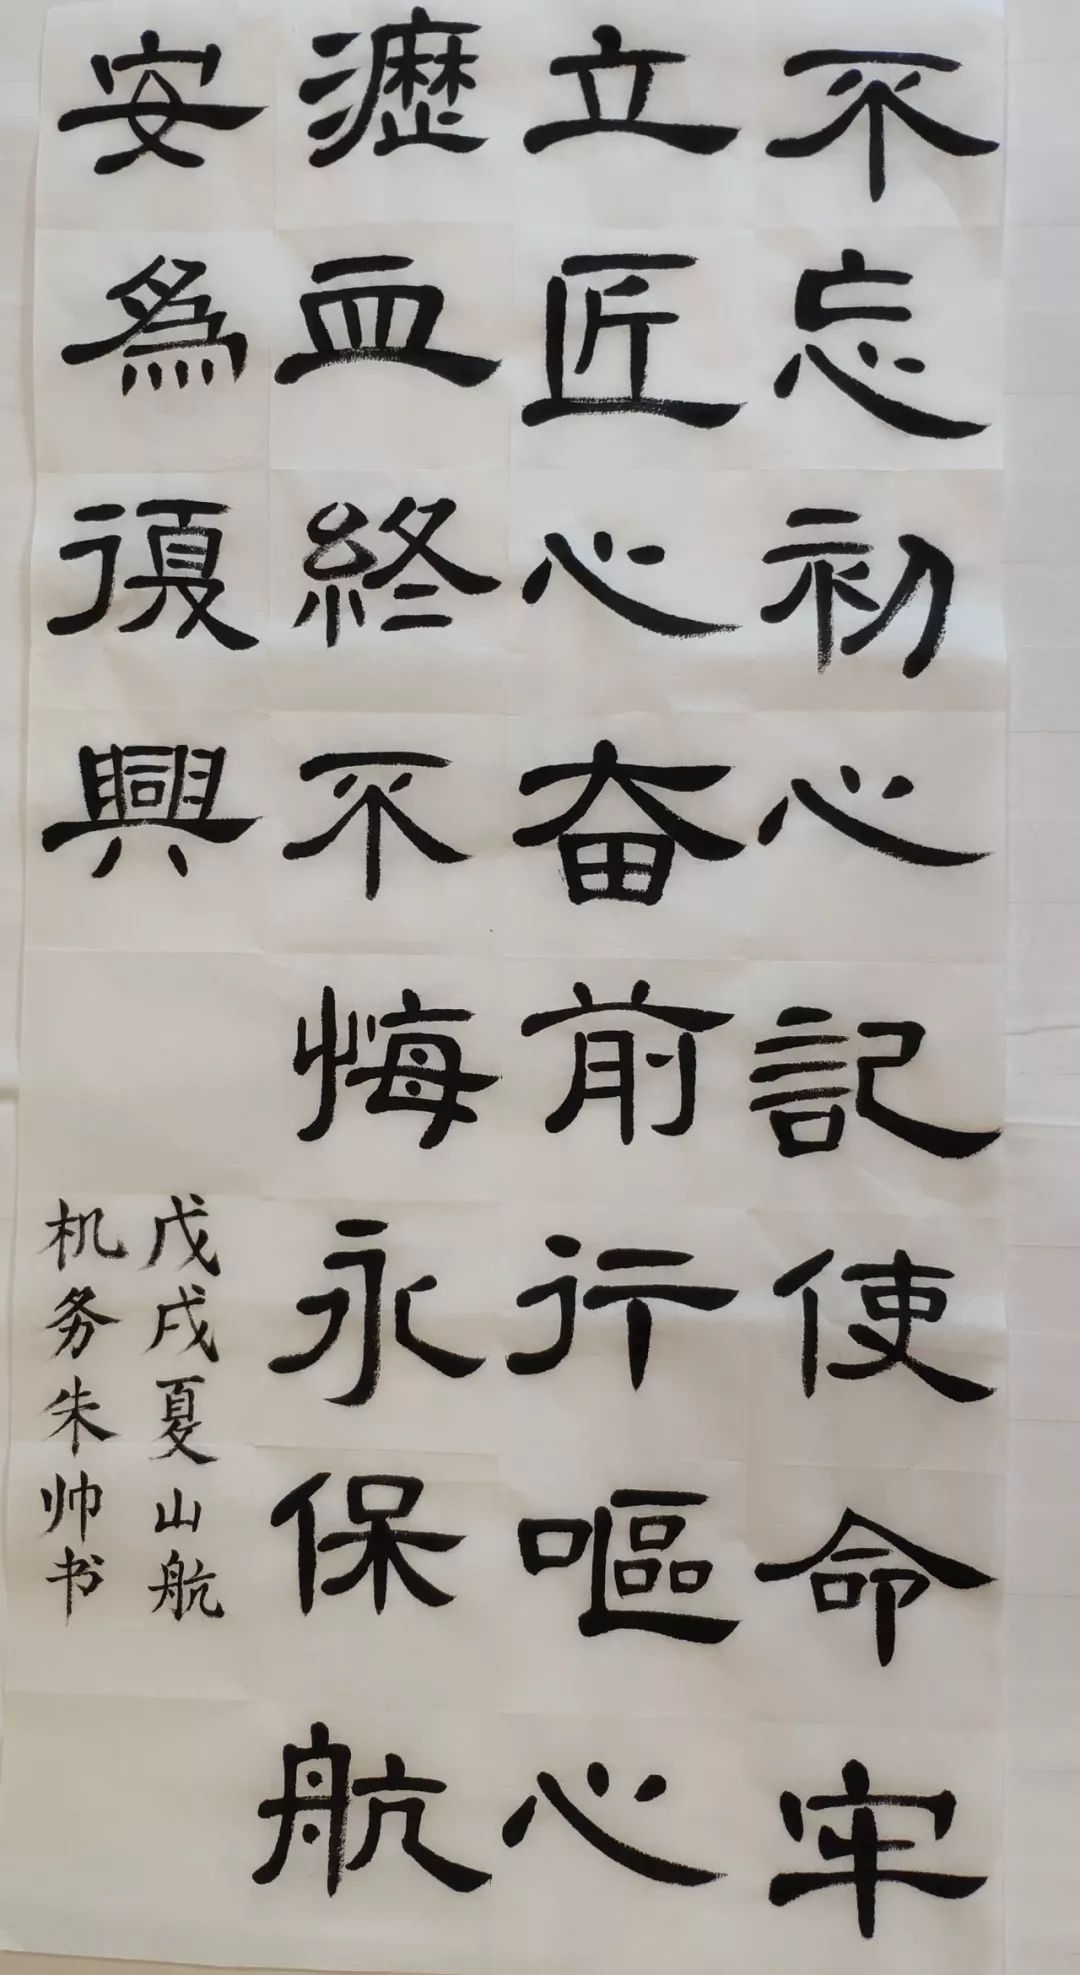 不忘初心記使命牢
立匠心奋前行嘔心
瀝血終不悔永保航
安為復興
戊戌夏山航
机务朱帅书